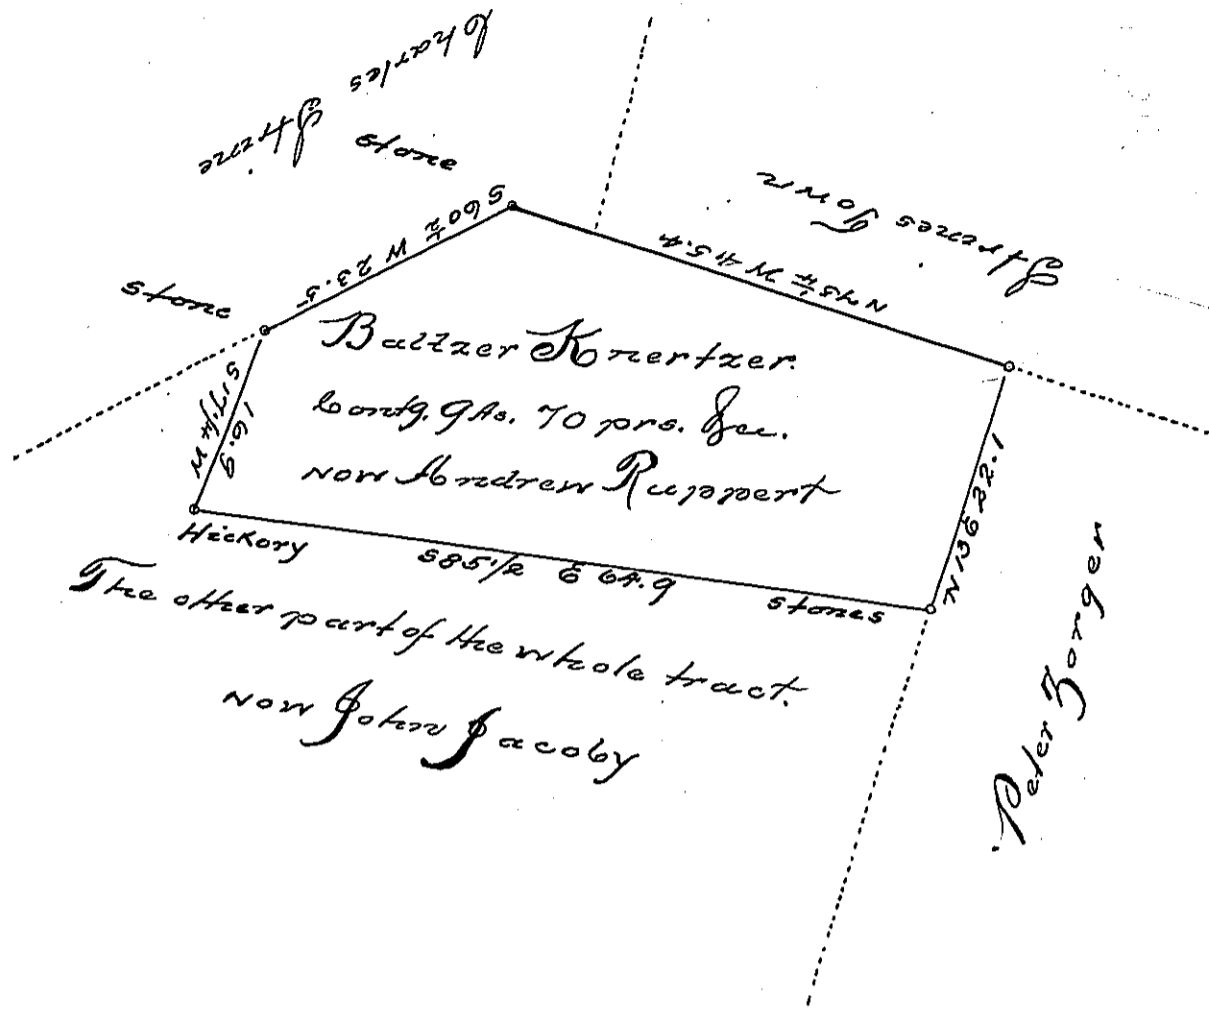 Charles
Strine
stone
S 60 1/2 W 23.5
stone
Strines Town
N 75 1/4 W 45.4
Baltzer Knertzer.
Contg. 9 As. 70 prs. &c.
now Andrew Ruppert
S 17 1/4 W
16.9
N 13 E 22.1
Hickory
S 85 1/2 E 64.9
stones
The other part of the whole tract.
now John Jacoby
Peter Zorger